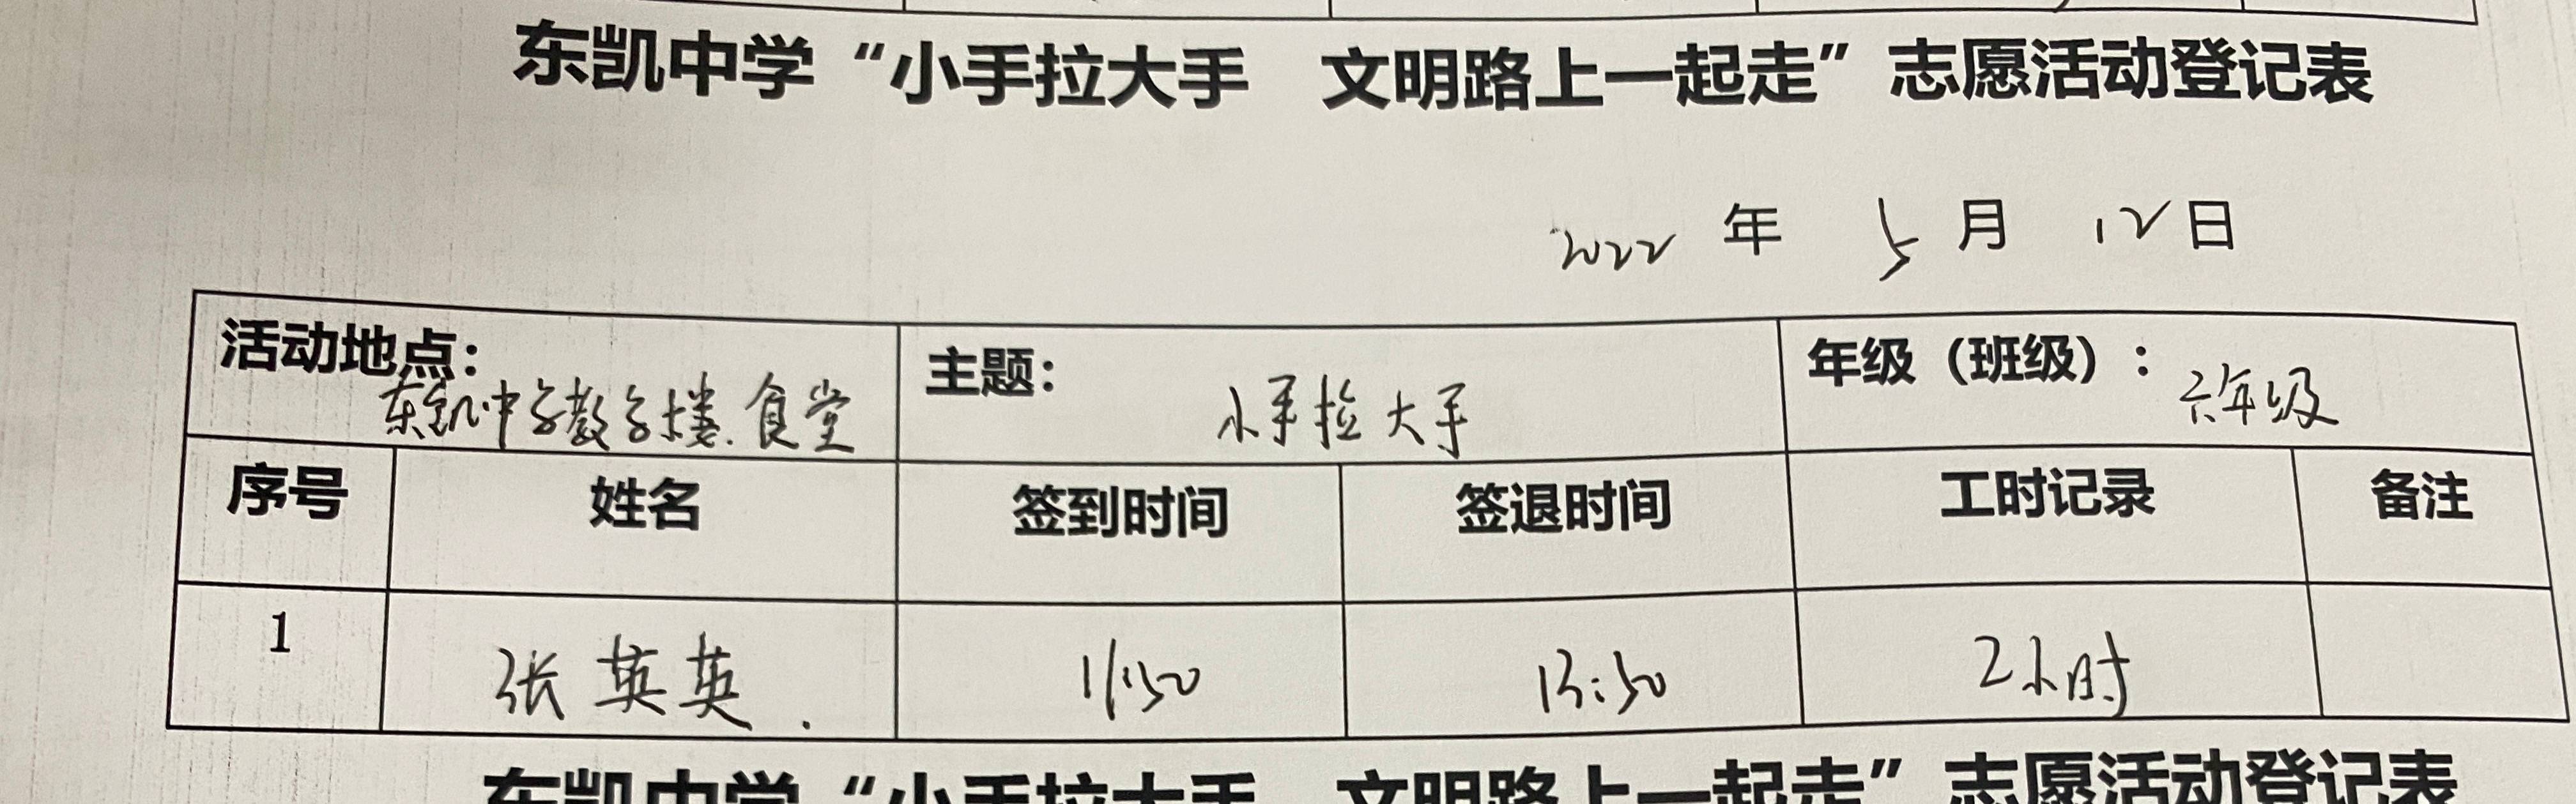 东凯中学“小手拉大手 文明路上一起走”志愿活动登记表
2022 年 5 月 12 日
活动地点：东凯中学教学楼.食堂
主题：小手拉大手
年级（班级）：六年级
序号 姓名 签到时间 签退时间 工时记录 备注
1 张英英. 11:50 13:50 2小时
东凯中学“小手拉大手 文明路上一起走”志愿活动登记表